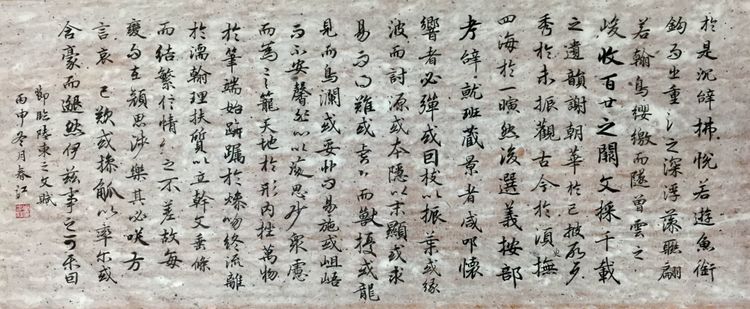 於是沉辭怫悅若遊魚銜
鈎而出重淵之深浮藻聯翩
若翰鳥纓繳而墜曾雲之
峻收百世之闕文採千載
之遺韻謝朝華於已披啟夕
秀於未振觀古今於須臾撫
四海於一瞬然後選義按部
考辭就班藏景者咸叩懷
響者必彈或因枝以振葉或緣
波而討源或本隱以末顯或求
易而得難或虎變而獸擾或龍
見而鳥瀾或妥帖而易施或岨峿
而不安罄心以凝思妙眾慮
而為言籠天地於形內挫萬物
於筆端始躑躅於燥吻終流離
於濡翰理扶質以立幹文垂條
而結繁信情貌之不差故每
變而在顏思涉樂其必咲方
言哀而已歎或操觚以率爾或
含豪而邈然伊茲事之可樂固
節臨陸柬之文賦
丙申冬月春江